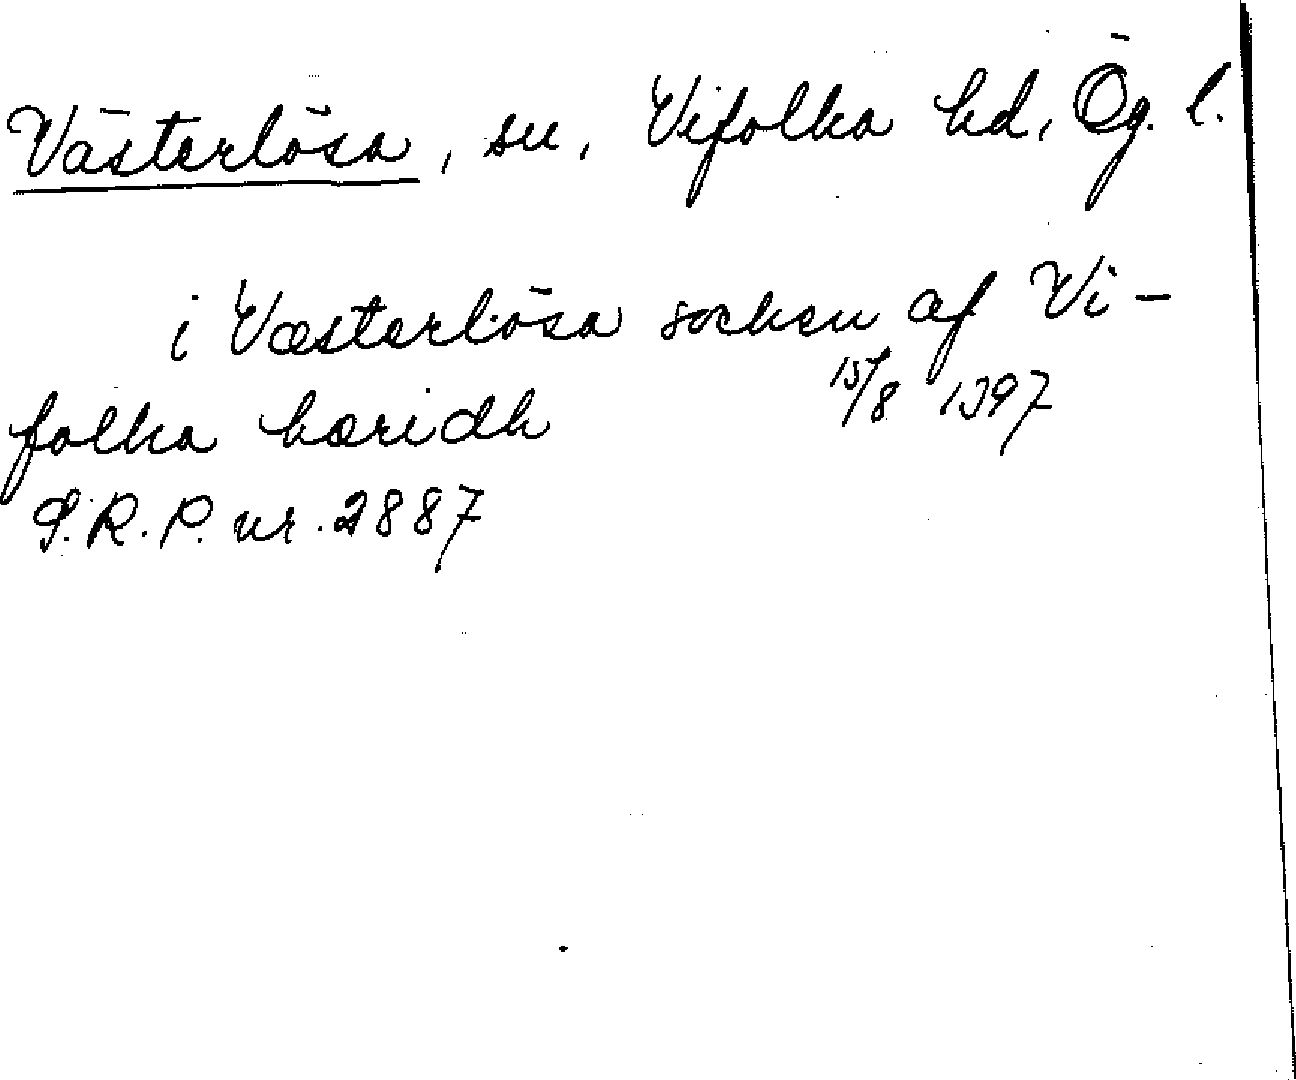 Västerlösa, sn, Vifolka hd, Ög. l.
i Væsterlösa sochen af Vi-
folka hæridh 15/8 1397
S.R.P. nr. 2887